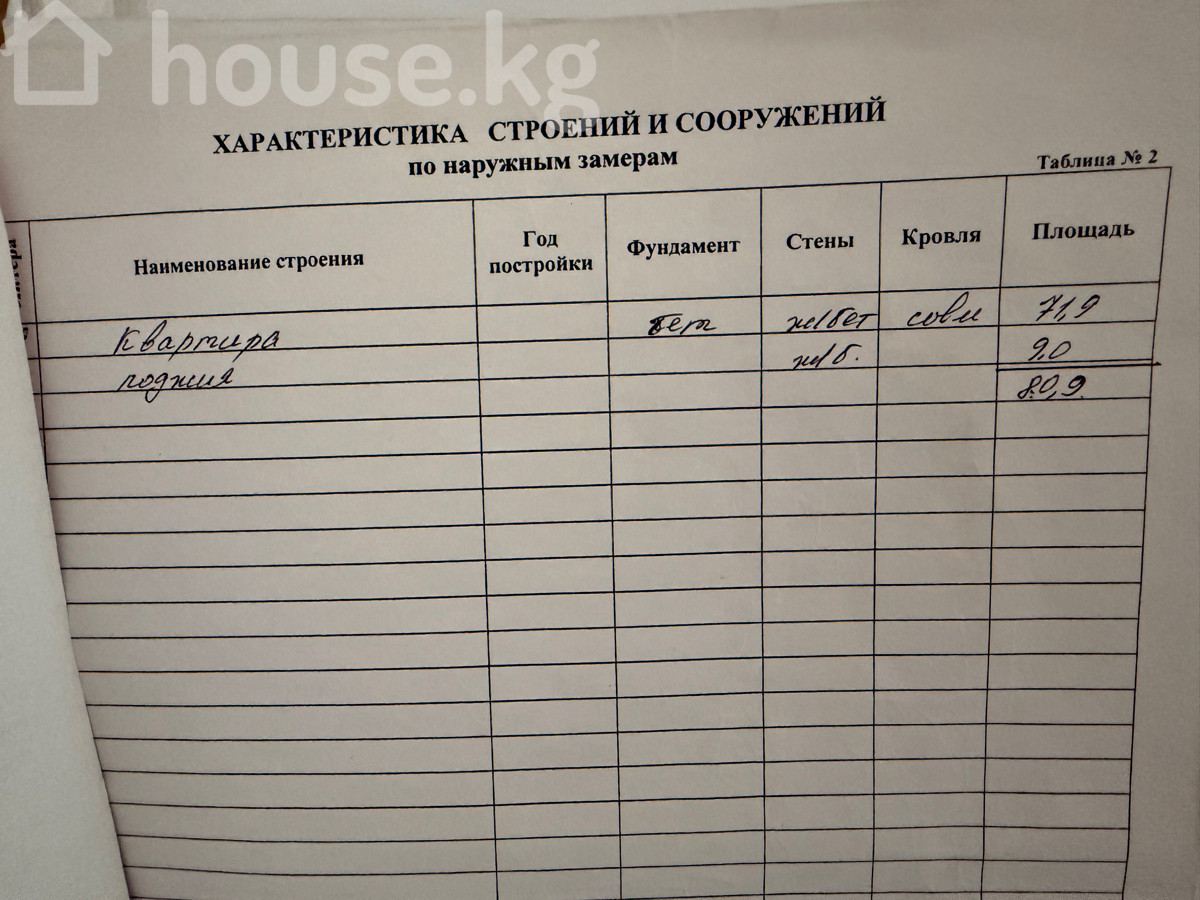 house.kg
ХАРАКТЕРИСТИКА СТРОЕНИЙ И СООРУЖЕНИЙ
по наружным замерам
Таблица № 2
Наименование строения Год постройки Фундамент Стены Кровля Площадь
Квартира бет ж/бет совм 71,9
лоджия ж/б. 9,0
80,9